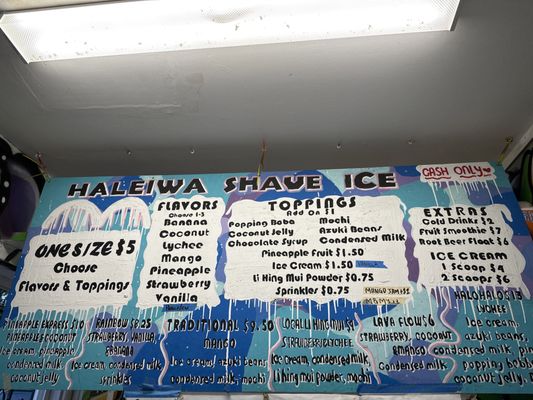 HALEIWA SHAVE ICE
CASH ONLY
ONE SIZE $5
Choose
Flavors & Toppings
FLAVORS
Choose 1-3
Banana
Coconut
Lychee
Mango
Pineapple
Strawberry
Vanilla
TOPPINGS
Add On $1
Popping Boba Mochi
Coconut Jelly Azuki Beans
Chocolate Syrup Condensed Milk
Pineapple Fruit $1.50
Ice Cream $1.50
Li Hing Mui Powder $0.75
Sprinkles $0.75
EXTRAS
Cold Drinks $2
Fruit Smoothie $7
Root Beer Float $6
ICE CREAM
1 Scoop $4
2 Scoops $6
PINEAPPLE EXPRESS
PINEAPPLE, COCONUT
Ice cream, pineapple
condensed milk
coconut jelly
RAINBOW
STRAWBERRY, VANILLA,
& BANANA
Ice cream, condensed milk
sprinkles
TRADITIONAL $9.50
MANGO
Ice cream, azuki beans,
condensed milk, mochi
LOCAL LI HING MUI
STRAWBERRY, LYCHEE
Ice cream, condensed milk,
li hing mui powder, mochi
LAVA FLOW $6
STRAWBERRY, COCONUT
& MANGO
Condensed milk
HALO HALO $13
LYCHEE
Ice cream,
azuki beans,
condensed milk,
popping boba
coconut